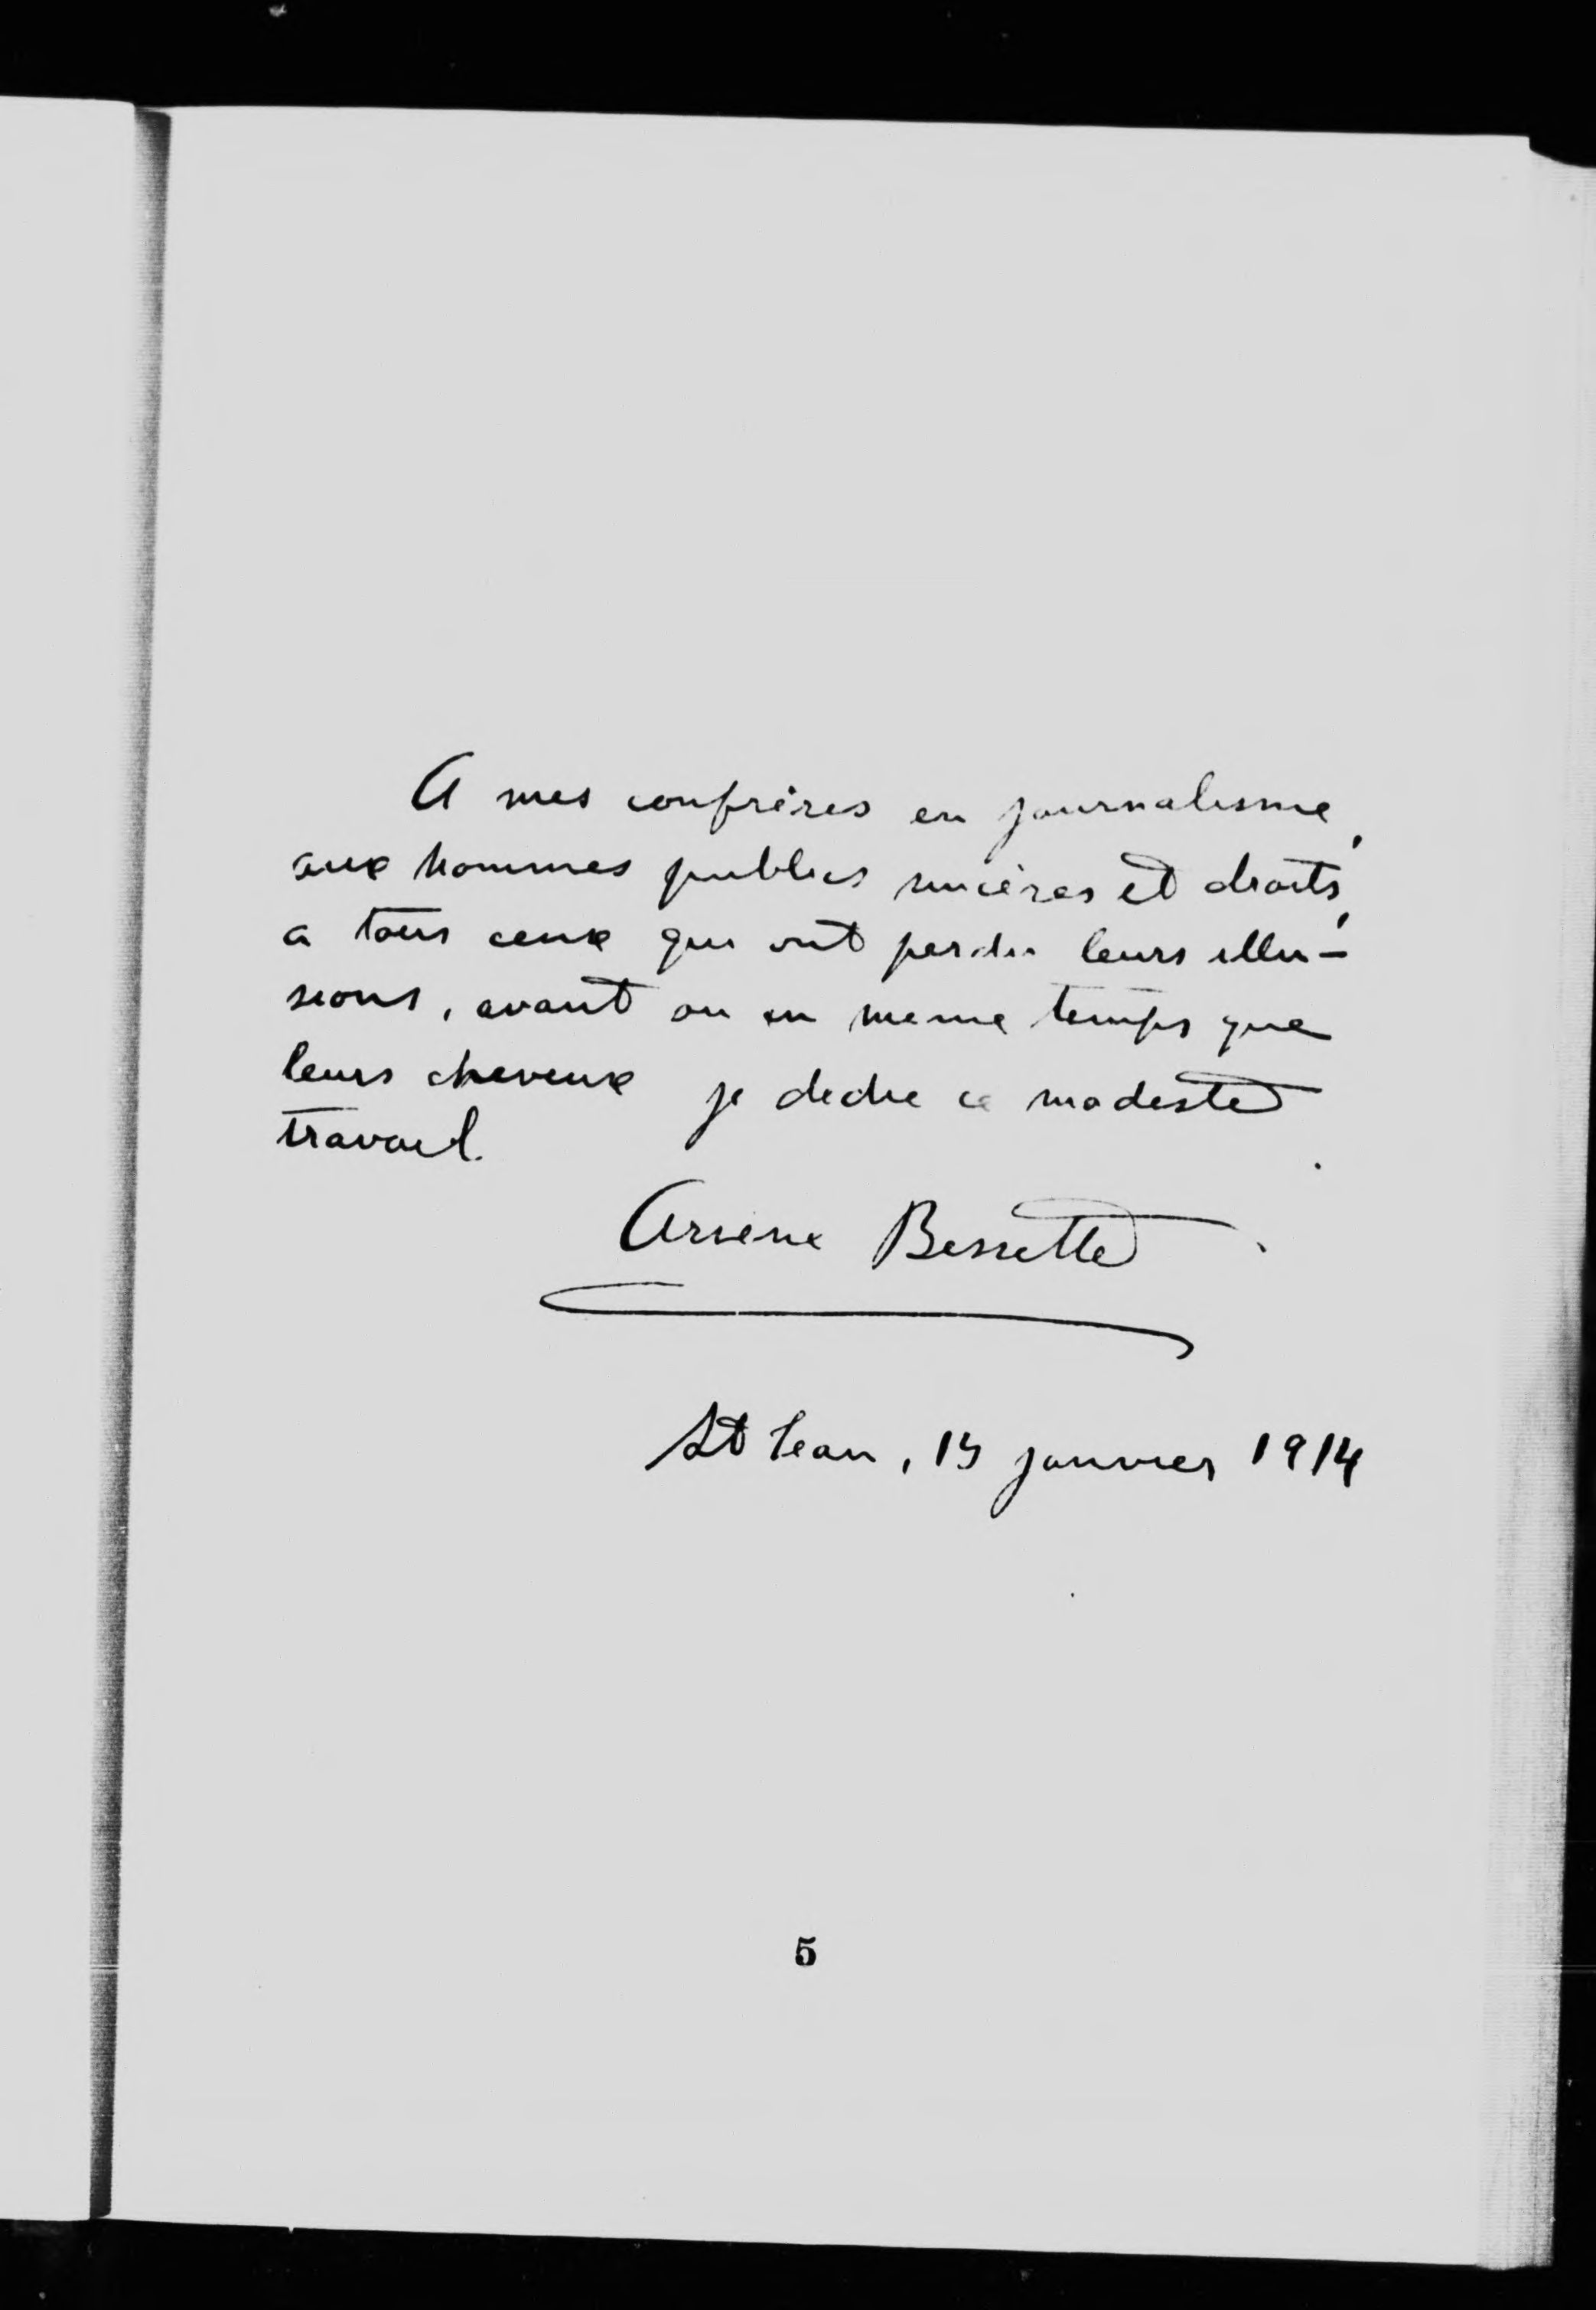 A mes confrères en journalisme,
aux hommes publics sincères et droits,
a tous ceux qui ont perdu leurs illu-
sions, avant ou en meme temps que
leurs cheveux je dedie ce modeste
travail.
Arsene Bessette
St Jean, 15 janvier 1914
5